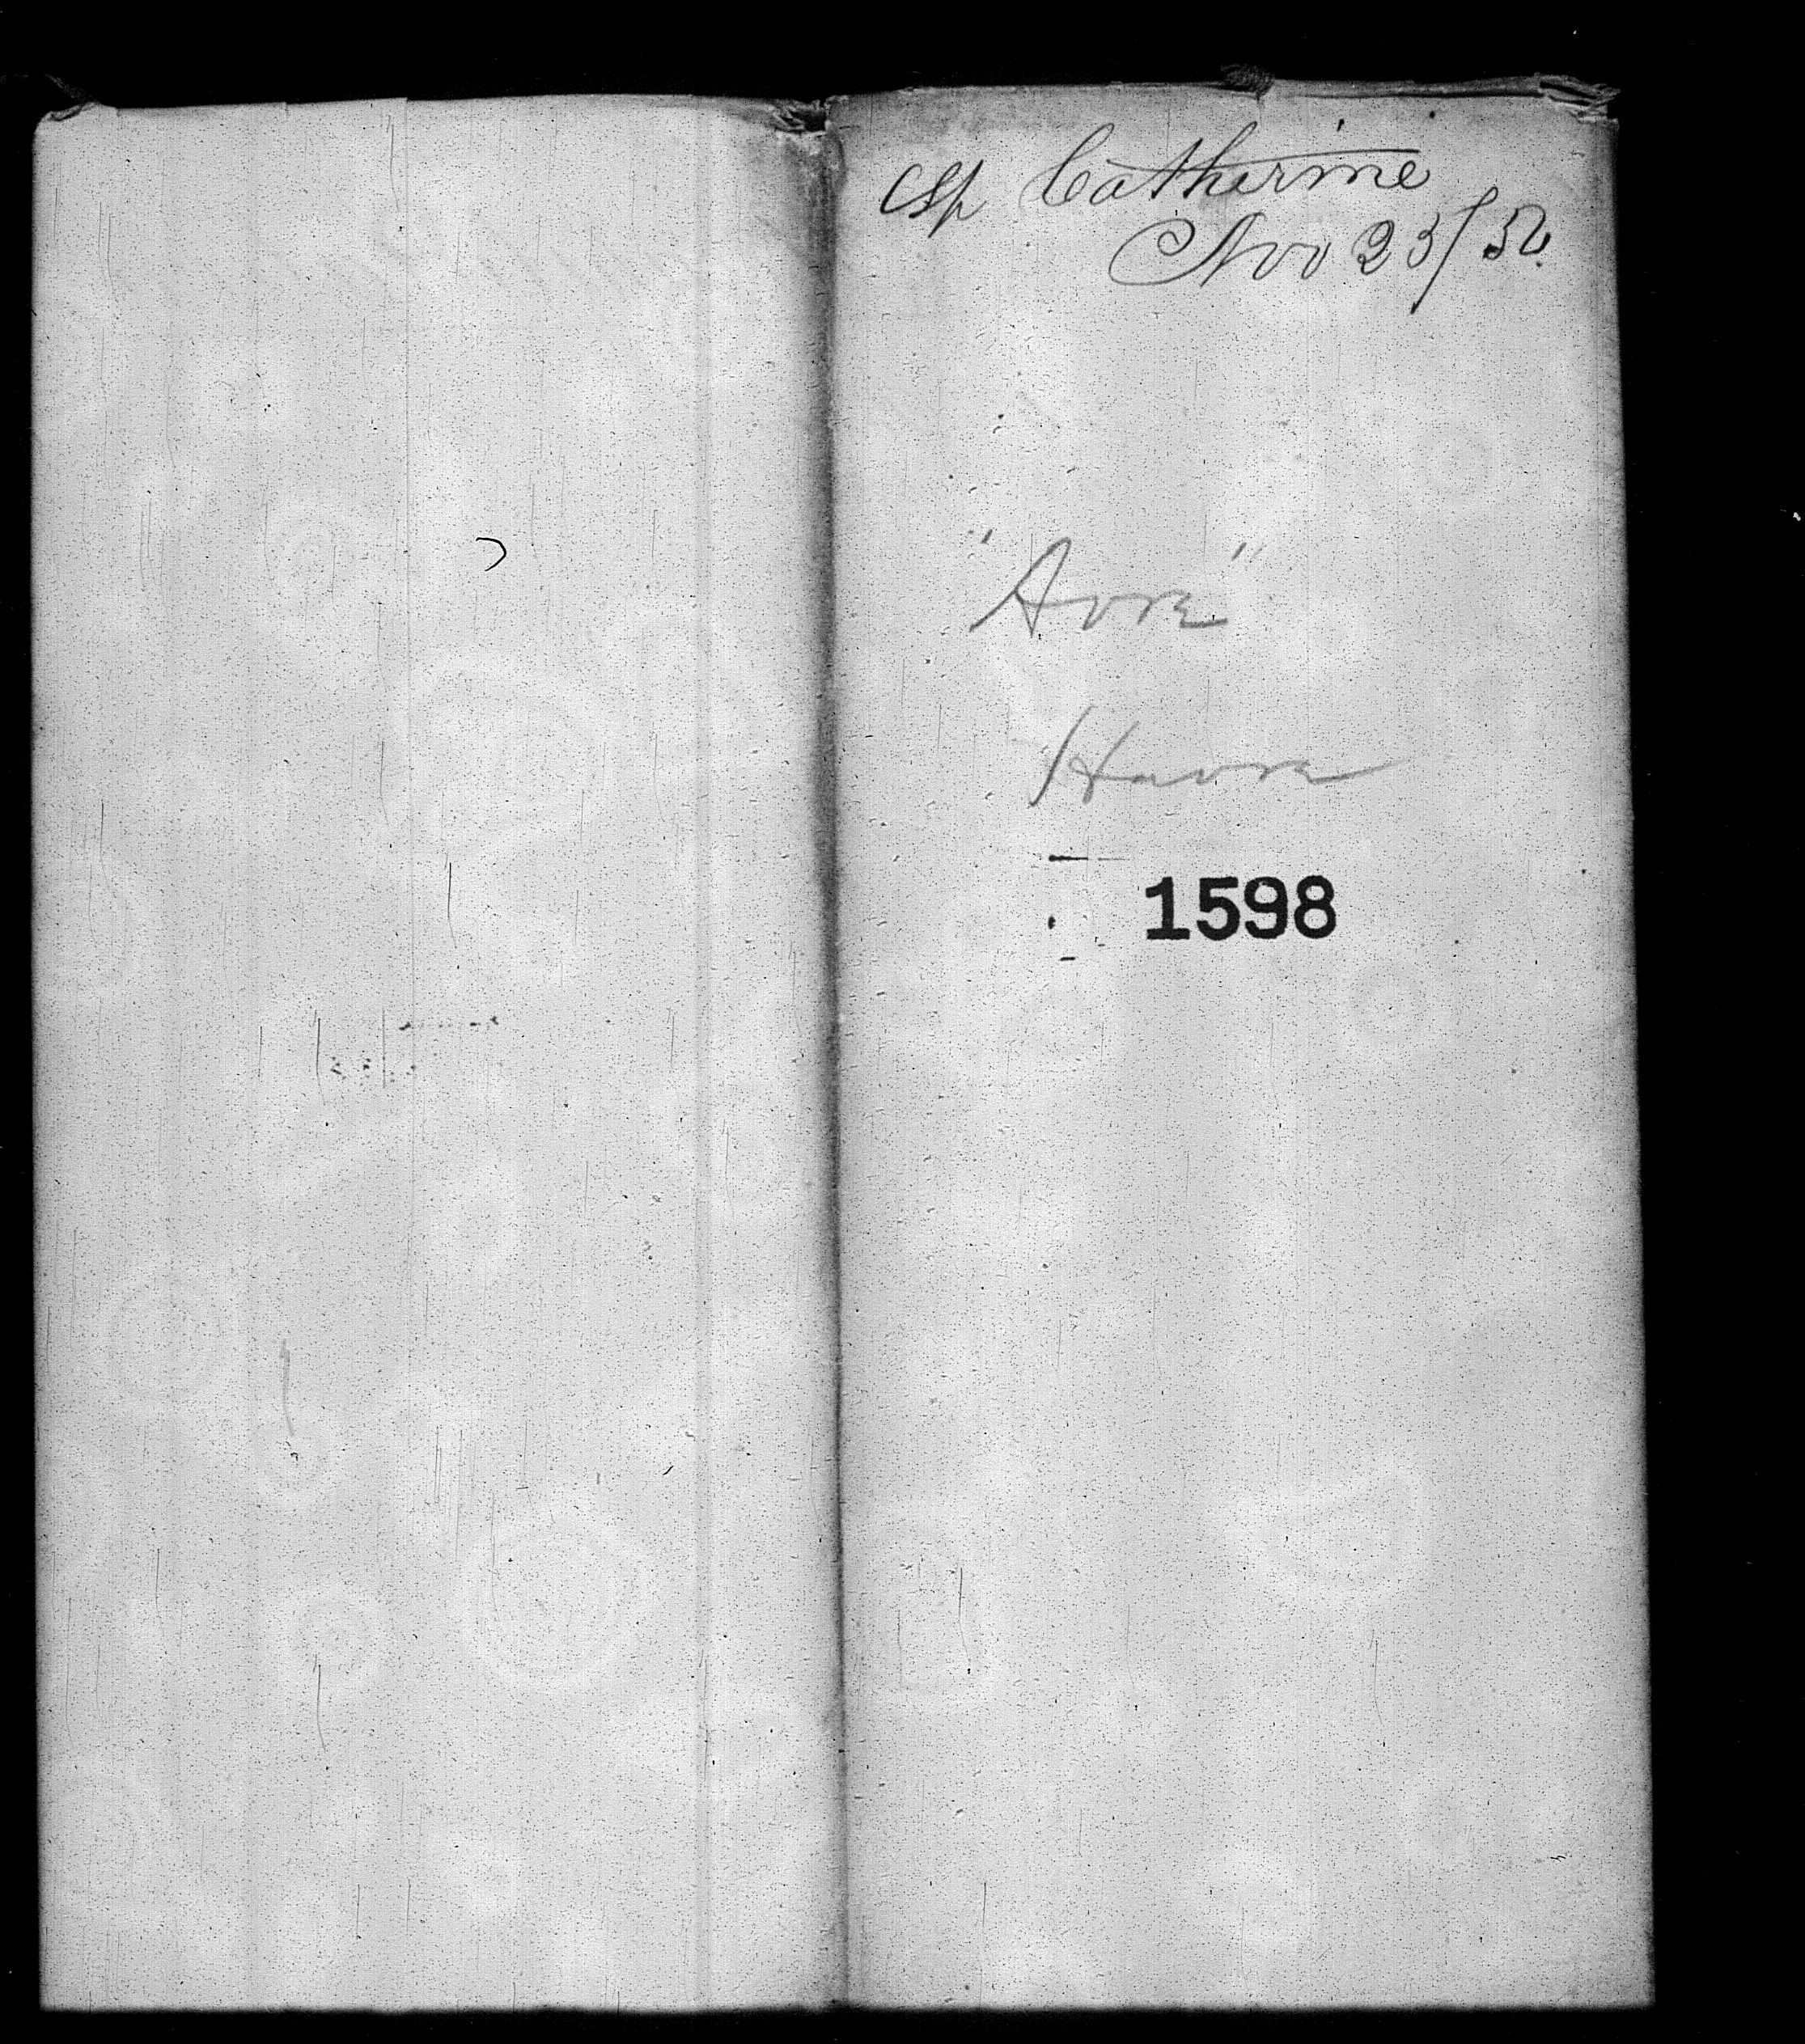 Sp Catherine
Nov 23/52
"Avre"
Havre
1598